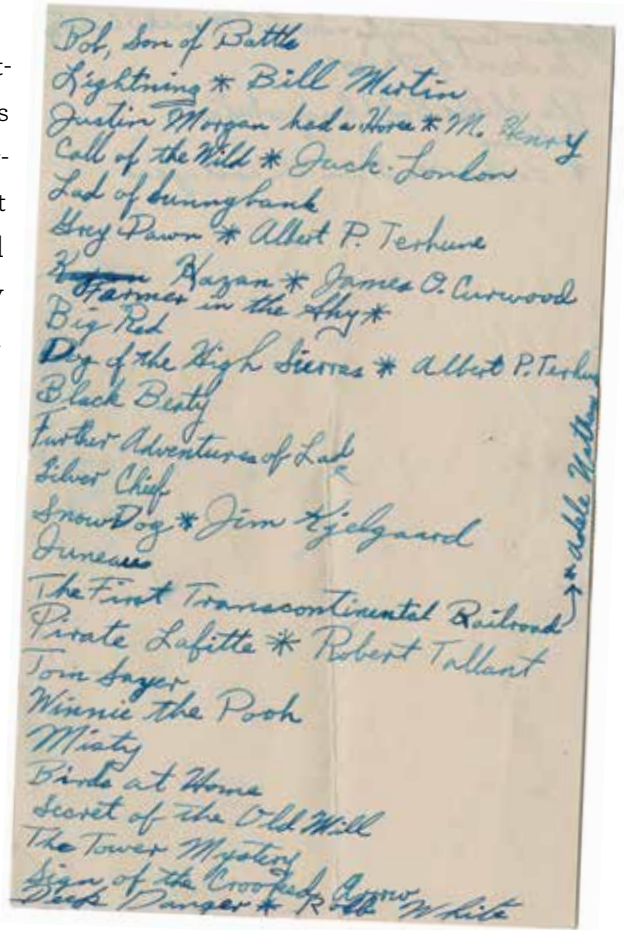 Bob, Son of Battle
Lightning * Bill Martin
Justin Morgan had a Horse * M. Henry
Call of the Wild * Jack London
Lad of Sunnybank
Grey Dawn * Albert P. Terhune
Kazan * James O. Curwood
Farmer in the Sky *
Big Red
Dog of the High Sierras * Albert P. Terhun
Black Beaty
Further Adventures of Lad
Silver Chief
Snow Dog * Jim Kjelgaard
Juneau
The First Transcontinental Railroad → * Adele Nathan
Pirate Lafitte * Robert Tallant
Tom Sayer
Winnie the Pooh
Misty
Birds at Home
Secret of the Old Mill
The Tower Mystery
Sign of the Crooked Arrow
Deep Danger * Robb White